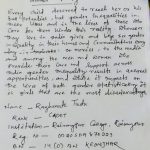 Every child deserves to reach her or his
full Potential but gender inequalities in
their lives and in the lives of those
care for them hinder this reality. Wherever
they live in India girls and boys see gender
inequality in their homes and communities every
day in textbooks in movies in the media
and among the men and women who
Provide their care and Support. across
India gender inequality results in unequal
opportunities and while it impacts on
the lives of both gender statistically it
is girls that are the most disadvantaged.
Name - Raghunath
RANK - CADET
Institution - Raisuanpur College, Raisuanpur
NO -
(O) BN KEONJHAR